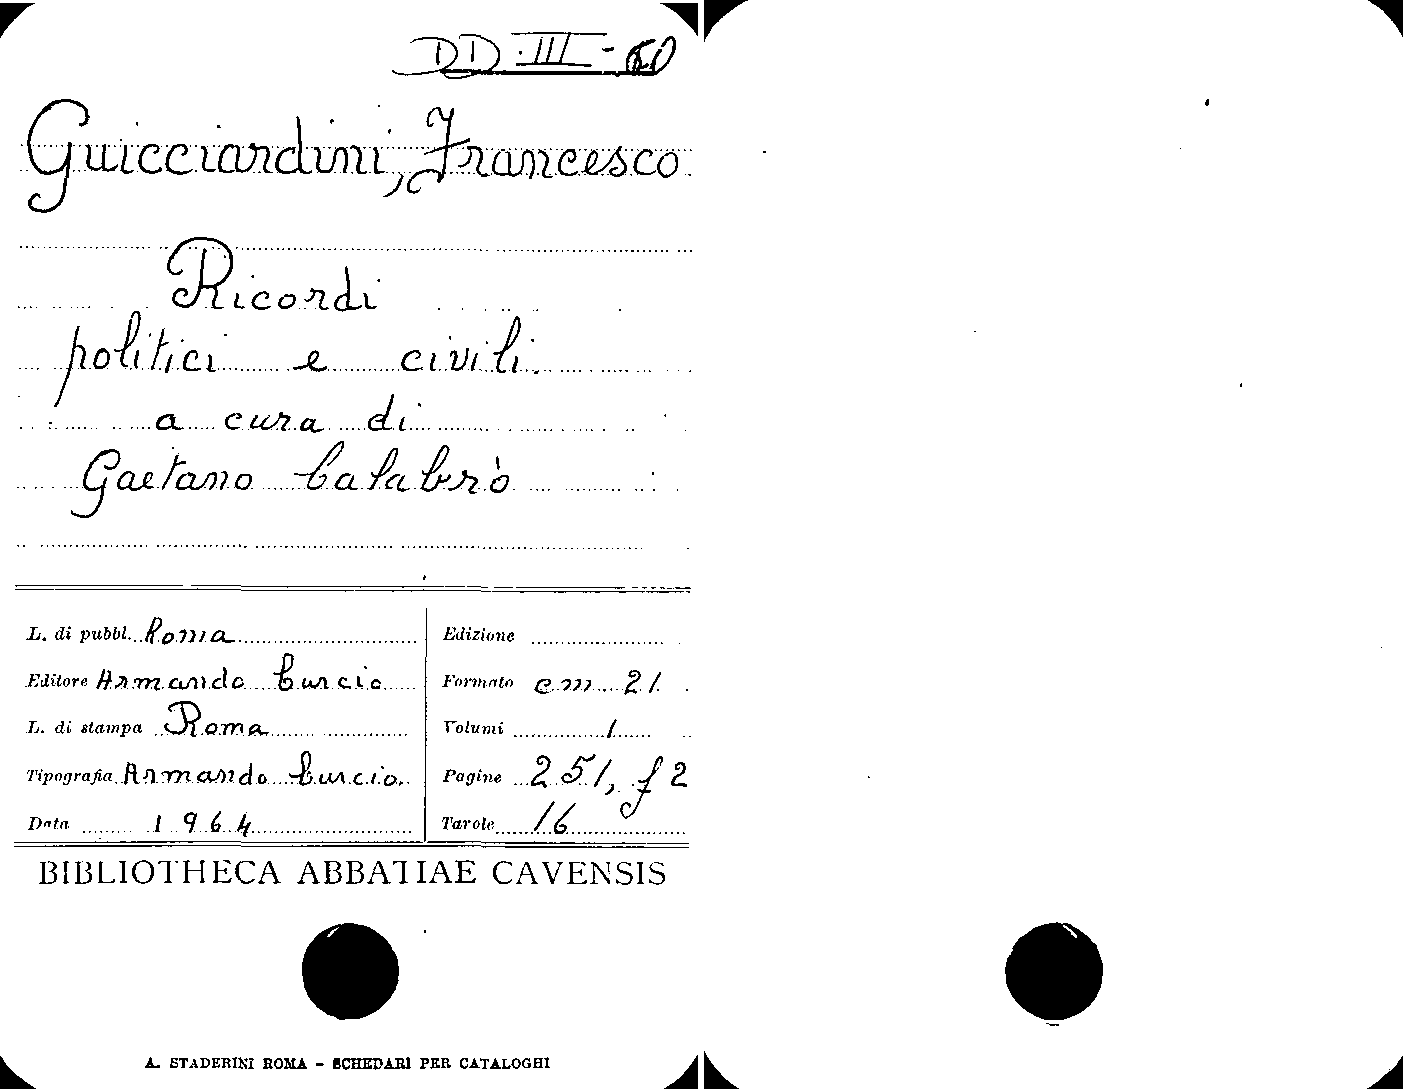 DD-III-60
Guicciardini, Francesco
Ricordi
politici e civili.
a cura di
Gaetano Calabrò
L. di pubbl. Roma
Editore Armando Curcio
L. di stampa Roma
Tipografia Armando Curcio.
Data 1964
Edizione
Formato cm 21
Volumi 1
Pagine 251, f 2
Tavole 16
BIBLIOTHECA ABBATIAE CAVENSIS
A. STADERINI ROMA - SCHEDARI PER CATALOGHI